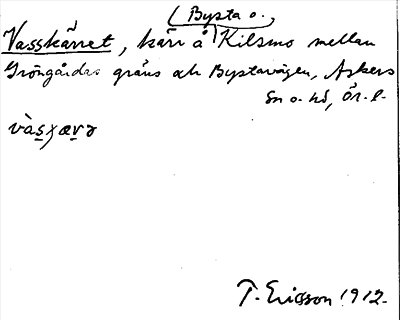 (Bysta o.,
Vasskärret, kärr å Kilsmo mellan
Gröngårdas gräns och Bystavägen, Askers
sn o. hd, Ör. l.
T. Ericsson 1912.